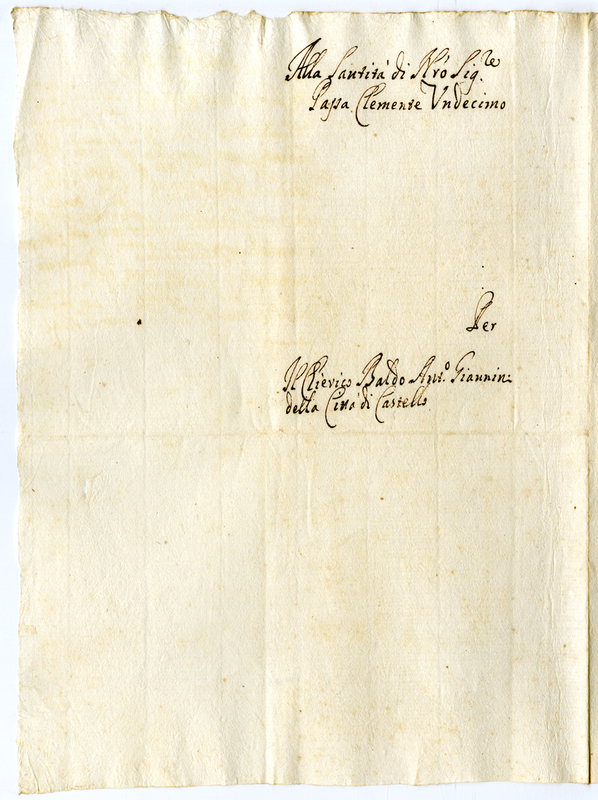 Alla Santità di Nrõ Sig.re
Papa Clemente Vndecimo
Per
Il Chierico Baldo Ant.o Giannini
della Città di Castello